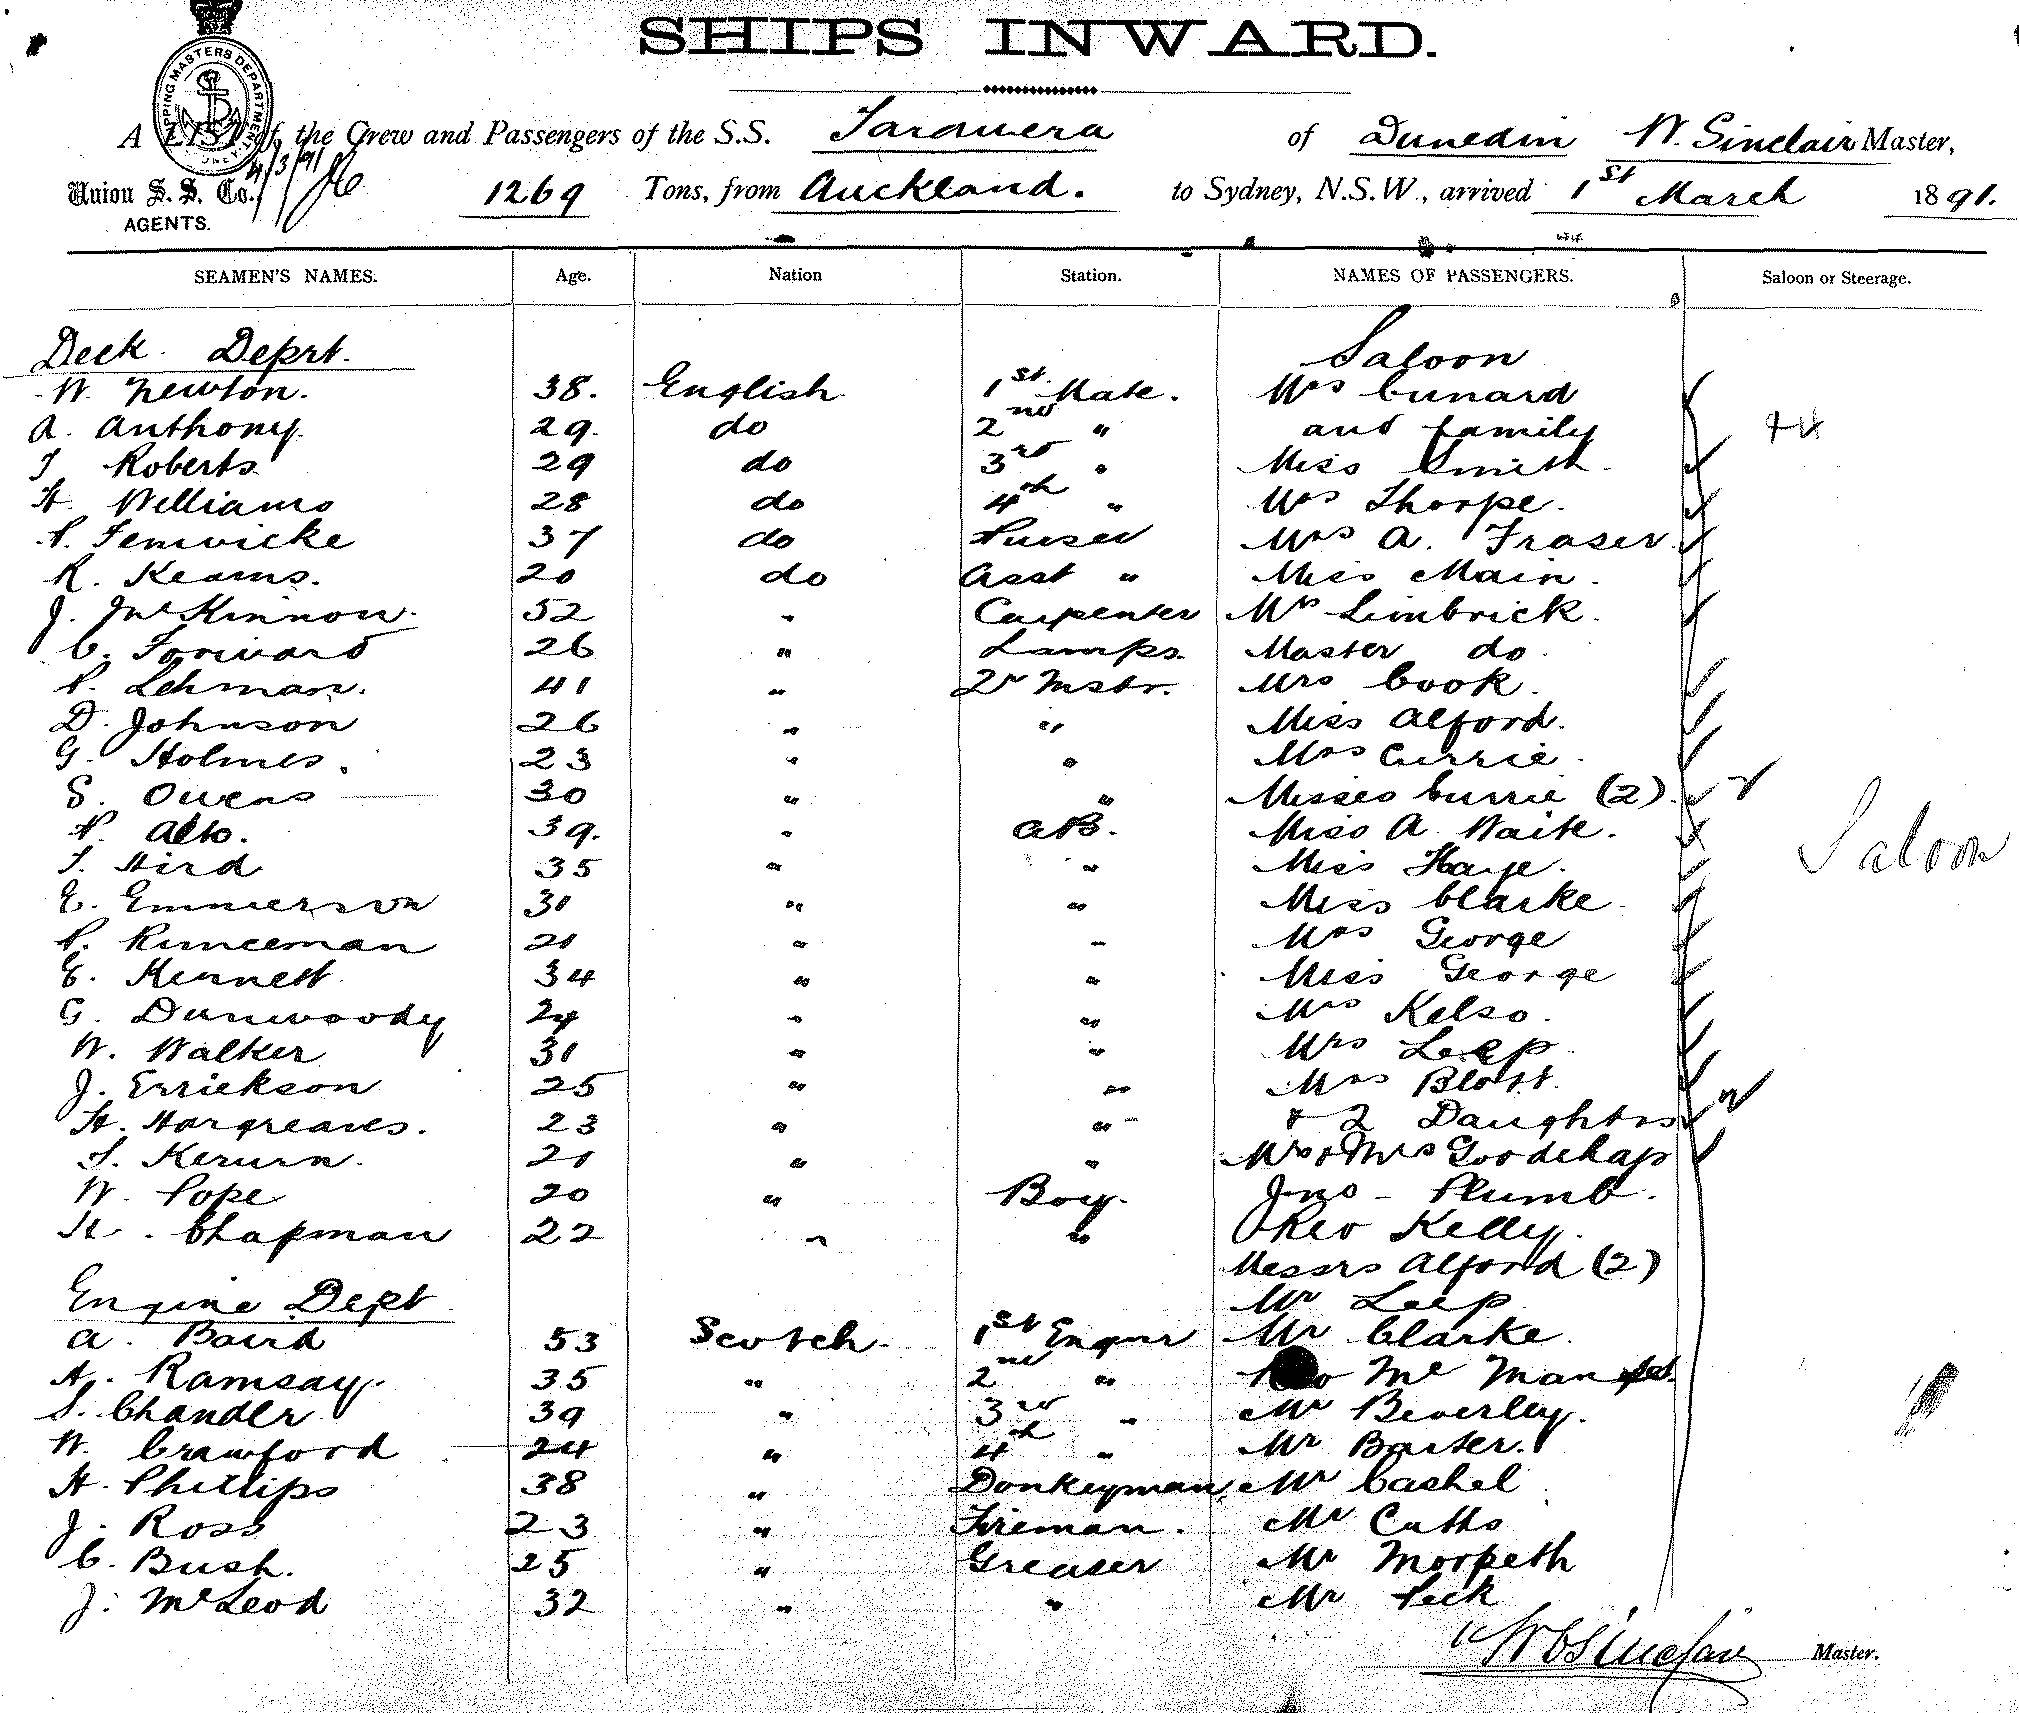 SHIPS INWARD.
SHIPPING MASTERS DEPARTMENT
A LIST of the Crew and Passengers of the S.S. Tarawera of Dunedin W. Sinclair Master,
Union S. S. Co. 1269 Tons, from Auckland. to Sydney, N.S.W., arrived 1st March 1891.
AGENTS. 4/3/91
SEAMEN'S NAMES. Age. Nation Station. NAMES OF PASSENGERS. Saloon or Steerage.
Deck Deprt. Saloon
W. Newton. 38. English 1st Mate. Mrs Cunard
A. Anthony. 29. do 2nd " and family
T Roberts 29 do 3rd " Miss Smith
H. Williams 28 do 4th " Mrs Thorpe.
P. Fenwicke 37 do Purser Mrs A. Fraser
R. Kearns. 20 do Asst " Miss Main.
J. McKinnon. 52 " Carpenter Mrs Limbrick.
C. Forward 26 " Lamps. Master do.
P. Lehman. 41 " 2r Mstr. Mrs Cook.
D. Johnson 26 " " Miss Alford.
G. Holmes. 23 " " Mrs Currie.
S. Owens 30 " " Misses Currie (2)
P. Alto. 39. " AB. Miss A Waite.
T. Hird 35 " " Miss Haye. Saloon
E. Emmerson 31 " " Miss Clarke
P. Runceman 21 " " Mrs George
E. Kennett 34 " " Miss George
G. Dunwoody 24 " " Mrs Kelso.
W. Walker 31 " " Mrs Leep
J. Errickson 25 " " Mrs Blott.
H. Hargreaves. 23 " " & 2 Daughtrs
S. 21 " " Mr & Mrs Goodchap
W. Pope 20 " Boy. Jno - Plumb.
H. Chapman 22 " " Rev Kelly.
Messrs Alford (2)
Engine Dept Mr Leep
A. Baird 53 Scotch 1st Engnr Mr Clarke.
H. Ramsay. 35 " 2nd " Mc
S. Chandler 39 " 3rd " Mr Beverley.
W. Crawford 24 " 4th " Mr Baster.
H. Phillips 38 " Donkeyman Mr Cashel
J. Ross 23 " Fireman. Mr Cutts
C. Bush. 25 " Greaser Mr Morpeth
J. McLeod 32 " " Mr Peck
W Sinclair Master.